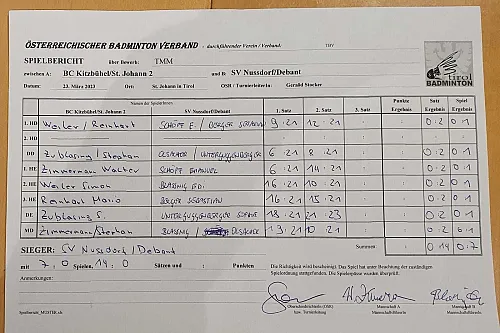 ÖSTERREICHISCHER BADMINTON VERBAND - durchführender Verein / Verband: TBV
SPIELBERICHT über Bewerb: TMM
zwischen A: BC Kitzbühel/St. Johann 2 und B: SV Nussdorf/Debant
Datum: 23. März 2013 Ort: St. Johann in Tirol OSR / Turnierleiter/in: Gerald Stocker
tirol BADMINTON
Namen der SpielerInnen
BC Kitzbühel/St. Johann 2 SV Nussdorf/Debant 1. Satz 2. Satz 3. Satz Punkte Ergebnis Satz Ergebnis Spiel Ergebnis
1. HD Weiler / Reinhart SCHÖPF E. / 9 : 21 12 : 21 0 : 2 0 : 1
2. HD
DD Zublasing / Stephan / UNTERGUGGENBERGER 6 : 21 8 : 21 0 : 2 0 : 1
1. HE Zimmermann Walter SCHÖPF EMANUEL 6 : 21 14 : 21 0 : 2 0 : 1
2. HE Weiler Simon BLASSNIG 16 : 21 10 : 21 0 : 2 0 : 1
3. HE Reinhart Mario SEBASTIAN 16 : 21 15 : 21 0 : 2 0 : 1
DE Zublasing S. UNTERGUGGENBERGER 18 : 21 21 : 23 0 : 2 0 : 1
MD Zimmermann/Stephan BLASSNIG / 13 : 21 10 : 21 0 : 2 0 : 1
SIEGER: SV Nussdorf / Debant Summen: 0 : 14 0 : 7
mit 7 : 0 Spielen, 14 : 0 Sätzen und : Punkten
Die Richtigkeit wird bescheinigt. Das Spiel hat unter Beachtung der zuständigen
Spielordnung stattgefunden. Die Spielerpässe wurden überprüft.
Anmerkungen:
Oberschiedsrichter/in (OSR) Mannschaft A Mannschaft B
bzw. Turnierleitung Mannschaftsführer/in Mannschaftsführer/in
Spielbericht_MUSTER.xls